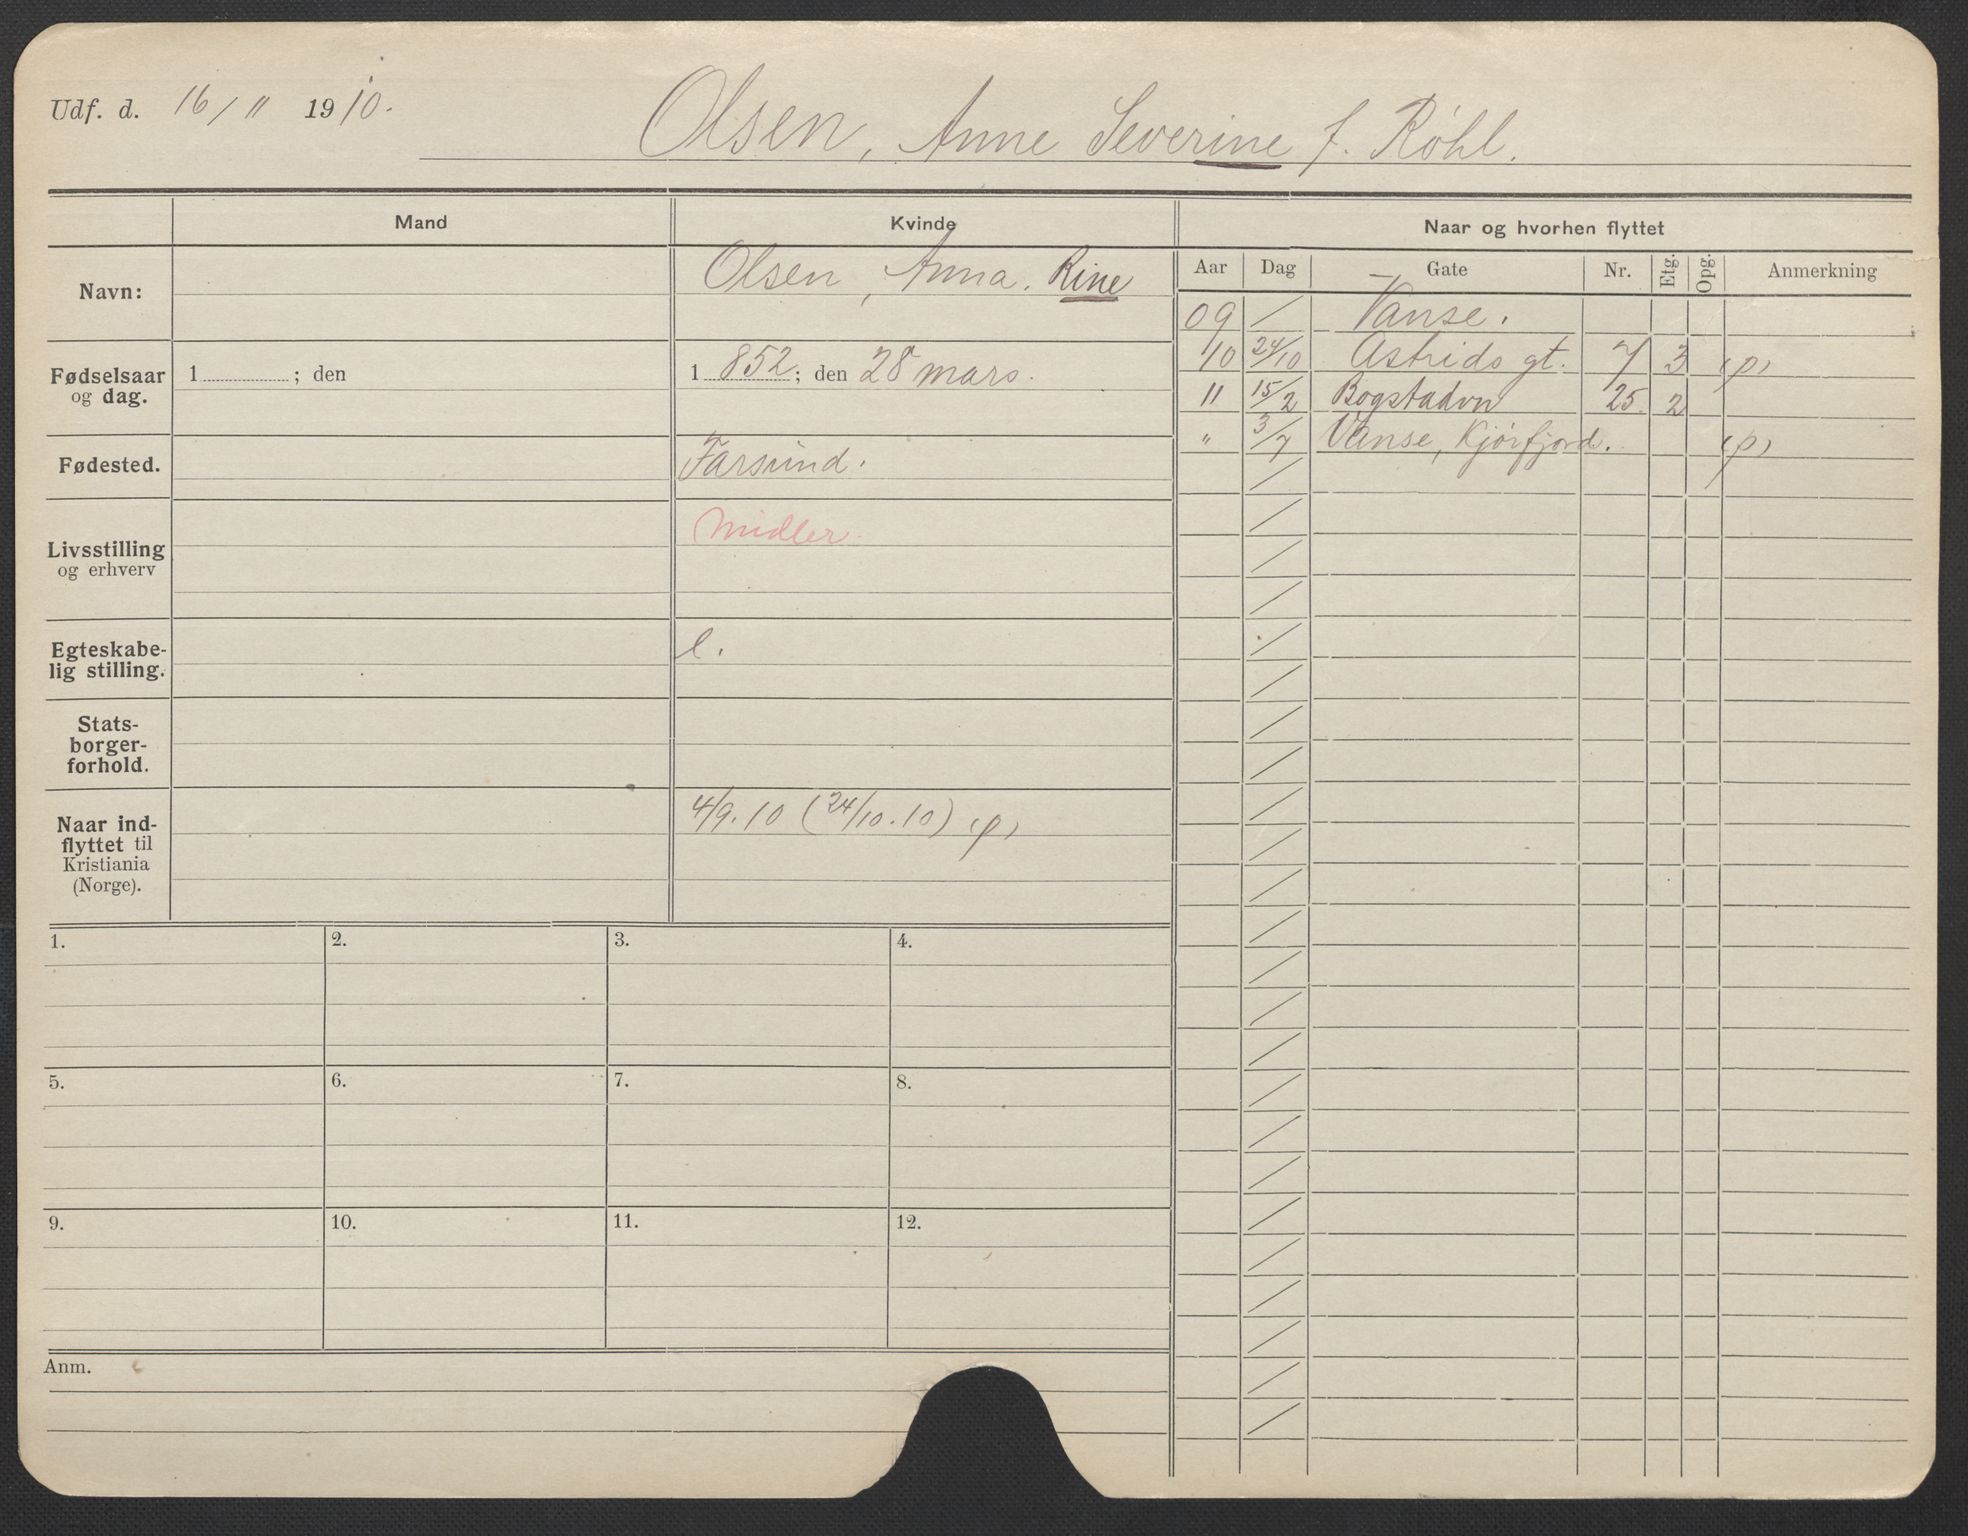 Udf. d. 16/11 1910.
Olsen, Anne Severine f. Røhl.
Mand
Kvinde
Naar og hvorhen flyttet
Aar Dag Gate Nr. Etg. Opg. Anmerkning
Navn:
Olsen, Anna. Rine
09 / Vanse.
10 24/10 Astrids gt. 7 3 (p)
11 15/2 Bogstadvn 25. 2
" 3/7 Vanse, Kjörfjord. (p)
Fødselsaar og dag.
1 ; den
1 852 ; den 28 mars.
Fødested.
Farsund.
Livsstilling og erhverv
Midler.
Egteskabe-
lig stilling.
e.
Stats-
borger-
forhold.
Naar ind-
flyttet til
Kristiania
(Norge).
4/9.10 (24/10.10) (p)
1. 2. 3. 4.
5. 6. 7. 8.
9. 10. 11. 12.
Anm.